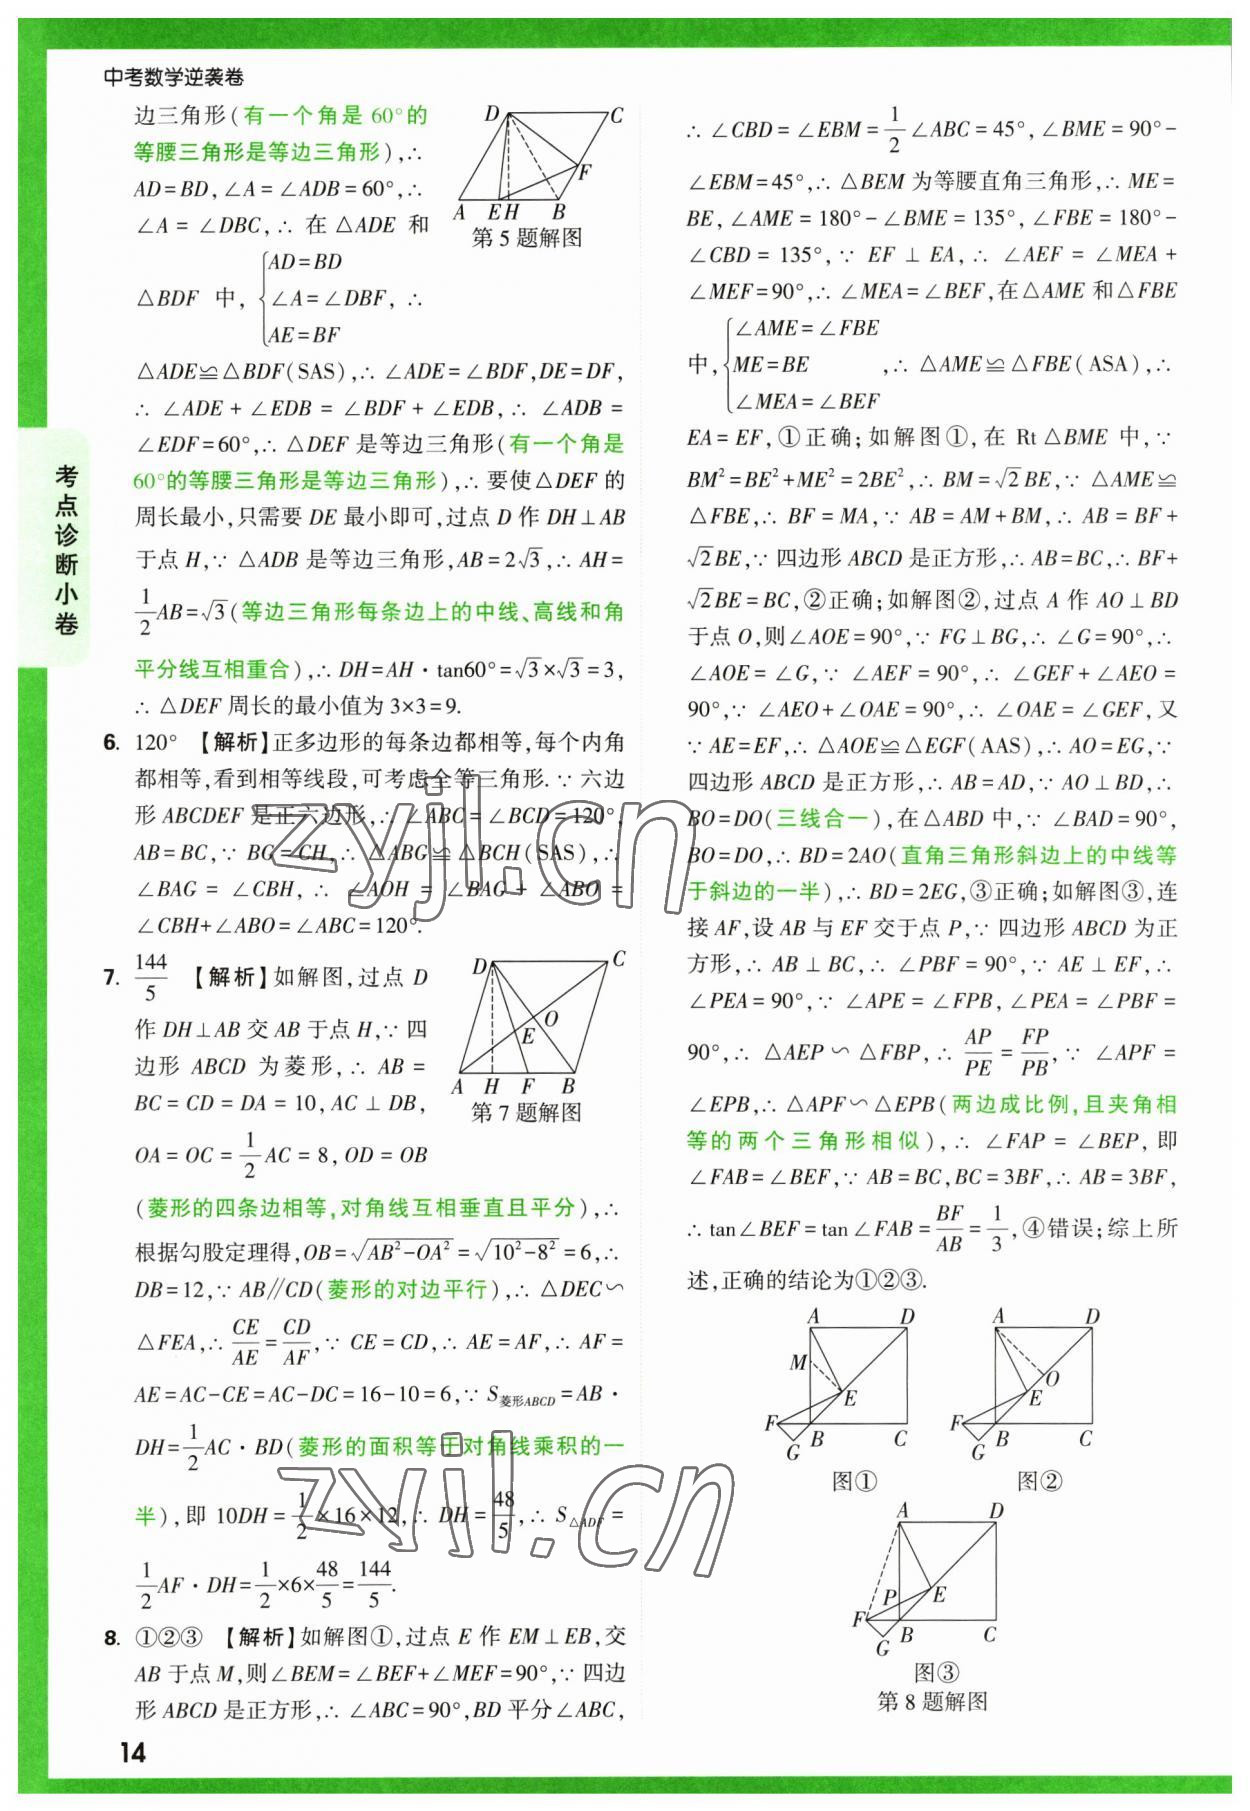 中考数学逆袭卷
边三角形(有一个角是 60°的
等腰三角形是等边三角形),∴
AD=BD,∠A=∠ADB=60°,∴
∠A=∠DBC,∴ 在△ADE 和
△BDF 中,{AD=BD ∠A=∠DBF, AE=BF ∴
D C F A E H B
第 5 题解图
△ADE≌△BDF(SAS),∴ ∠ADE=∠BDF,DE=DF,
∴ ∠ADE+∠EDB=∠BDF+∠EDB,∴ ∠ADB=
∠EDF=60°,∴ △DEF 是等边三角形(有一个角是
60°的等腰三角形是等边三角形),∴ 要使△DEF 的
周长最小,只需要 DE 最小即可,过点 D 作 DH⊥AB
于点 H,∵ △ADB 是等边三角形,AB=2√3,∴ AH=
1/2 AB=√3(等边三角形每条边上的中线、高线和角
平分线互相重合),∴ DH=AH·tan60°=√3×√3=3,
∴ △DEF 周长的最小值为 3×3=9.
6. 120° 【解析】正多边形的每条边都相等,每个内角
都相等,看到相等线段,可考虑全等三角形.∵ 六边
形 ABCDEF 是正六边形,∴ ∠ABC=∠BCD=120°,
AB=BC,∵ BG=CH,∴ △ABG≌△BCH(SAS),∴
∠BAG=∠CBH,∴ ∠AOH=∠BAG+∠ABO=
∠CBH+∠ABO=∠ABC=120°.
7. 144/5 【解析】如解图,过点 D
作 DH⊥AB 交 AB 于点 H,∵ 四
边形 ABCD 为菱形,∴ AB=
BC=CD=DA=10,AC⊥DB,
OA=OC=1/2 AC=8,OD=OB
D C O E A H F B
第 7 题解图
(菱形的四条边相等,对角线互相垂直且平分),∴
根据勾股定理得,OB=√(AB²-OA²)=√(10²-8²)=6,∴
DB=12,∵ AB∥CD(菱形的对边平行),∴ △DEC∽
△FEA,∴ CE/AE=CD/AF,∵ CE=CD,∴ AE=AF,∴ AF=
AE=AC-CE=AC-DC=16-10=6,∵ S菱形ABCD=AB·
DH=1/2 AC·BD(菱形的面积等于对角线乘积的一
半),即 10DH=1/2×16×12,∴ DH=48/5,∴ S△ADF=
1/2 AF·DH=1/2×6×48/5=144/5.
8. ①②③ 【解析】如解图①,过点 E 作 EM⊥EB,交
AB 于点 M,则∠BEM=∠BEF+∠MEF=90°,∵ 四边
形 ABCD 是正方形,∴ ∠ABC=90°,BD 平分∠ABC,
∴ ∠CBD=∠EBM=1/2∠ABC=45°,∠BME=90°-
∠EBM=45°,∴ △BEM 为等腰直角三角形,∴ ME=
BE,∠AME=180°-∠BME=135°,∠FBE=180°-
∠CBD=135°,∵ EF⊥EA,∴ ∠AEF=∠MEA+
∠MEF=90°,∴ ∠MEA=∠BEF,在△AME 和△FBE
中,{∠AME=∠FBE ME=BE ∠MEA=∠BEF ,∴ △AME≌△FBE(ASA),∴
EA=EF,①正确;如解图①,在 Rt△BME 中,∵
BM²=BE²+ME²=2BE²,∴ BM=√2BE,∵ △AME≌
△FBE,∴ BF=MA,∵ AB=AM+BM,∴ AB=BF+
√2BE,∵ 四边形 ABCD 是正方形,∴ AB=BC,∴ BF+
√2BE=BC,②正确;如解图②,过点 A 作 AO⊥BD
于点 O,则∠AOE=90°,∵ FG⊥BG,∴ ∠G=90°,∴
∠AOE=∠G,∵ ∠AEF=90°,∴ ∠GEF+∠AEO=
90°,∵ ∠AEO+∠OAE=90°,∴ ∠OAE=∠GEF,又
∵ AE=EF,∴ △AOE≌△EGF(AAS),∴ AO=EG,∵
四边形 ABCD 是正方形,∴ AB=AD,∵ AO⊥BD,∴
BO=DO(三线合一),在△ABD 中,∵ ∠BAD=90°,
BO=DO,∴ BD=2AO(直角三角形斜边上的中线等
于斜边的一半),∴ BD=2EG,③正确;如解图③,连
接 AF,设 AB 与 EF 交于点 P,∵ 四边形 ABCD 为正
方形,∴ AB⊥BC,∴ ∠PBF=90°,∵ AE⊥EF,∴
∠PEA=90°,∵ ∠APE=∠FPB,∠PEA=∠PBF=
90°,∴ △AEP∽△FBP,∴ AP/PE=FP/PB,∵ ∠APF=
∠EPB,∴ △APF∽△EPB(两边成比例,且夹角相
等的两个三角形相似),∴ ∠FAP=∠BEP,即
∠FAB=∠BEF,∵ AB=BC,BC=3BF,∴ AB=3BF,
∴ tan∠BEF=tan∠FAB=BF/AB=1/3,④错误;综上所
述,正确的结论为①②③.
A D M E F G B C
图①
A D O E F G B C
图②
A D P E F G B C
图③
第 8 题解图
考点诊断小卷
14
zyjl.cn
zyjl.cn